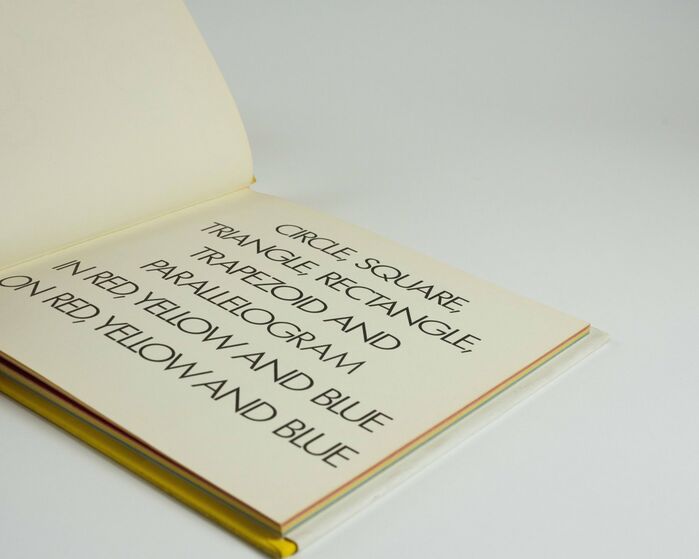 CIRCLE, SQUARE,
TRIANGLE, RECTANGLE,
TRAPEZOID AND
PARALLELOGRAM
IN RED, YELLOW AND BLUE
ON RED, YELLOW AND BLUE